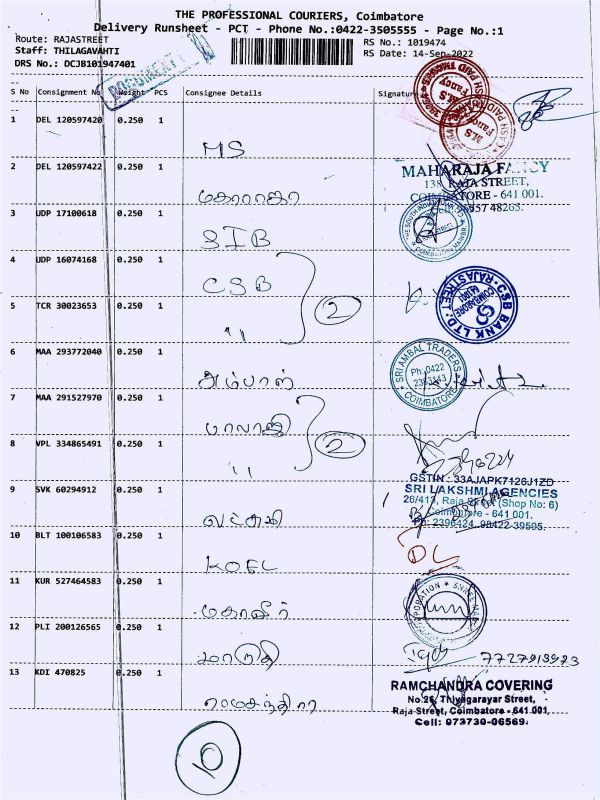 THE PROFESSIONAL COURIERS, Coimbatore
Delivery Runsheet - PCT - Phone No.:0422-3505555 - Page No.:1
Route: RAJASTREET
RS No.: 1019474
Staff: THILAGAVAHTI
RS Date: 14-Sep-2022
DRS No.: DCJB101947401
DOCUMENT
S No Consignment No Weight PCS Consignee Details Signature
1 DEL 120597420 0.250 1
MS
2 DEL 120597422 0.250 1
மகாராஜா
MAHARAJA FANCY
138, RAJA STREET,
COIMBATORE - 641 001.
96957 48263.
3 UDP 17100618 0.250 1
SIB
4 UDP 16074168 0.250 1
CSB
2
CSB BANK LTD.
RAJASTREET
COIMBATORE
641001
5 TCR 30023653 0.250 1
"
6 MAA 293772040 0.250 1
அம்பாள்
SRI AMBAL TRADERS
Ph:0422
2393143
COIMBATORE
7 MAA 291527970 0.250 1
பாலாஜி
2
8 VPL 334865491 0.250 1
"
GSTIN : 33AJAPK7126J1ZD
SRI LAKSHMI AGENCIES
26/413, Raja Street (Shop No: 6)
Coimbatore - 641 001.
Ph: 2396424, 98422 39505.
9 SVK 60294912 0.250 1
லட்சுமி
10 BLT 100106583 0.250 1
KOEL
11 KUR 527464583 0.250 1
மகாவீர்
12 PLI 200126565 0.250 1
மாருதி
13 KDI 470825 0.250 1
ராமசந்திரா
RAMCHANDRA COVERING
No.26, Thiyagarayar Street,
Raja Street, Coimbatore - 641 001,
Cell: 973730-06569.
10